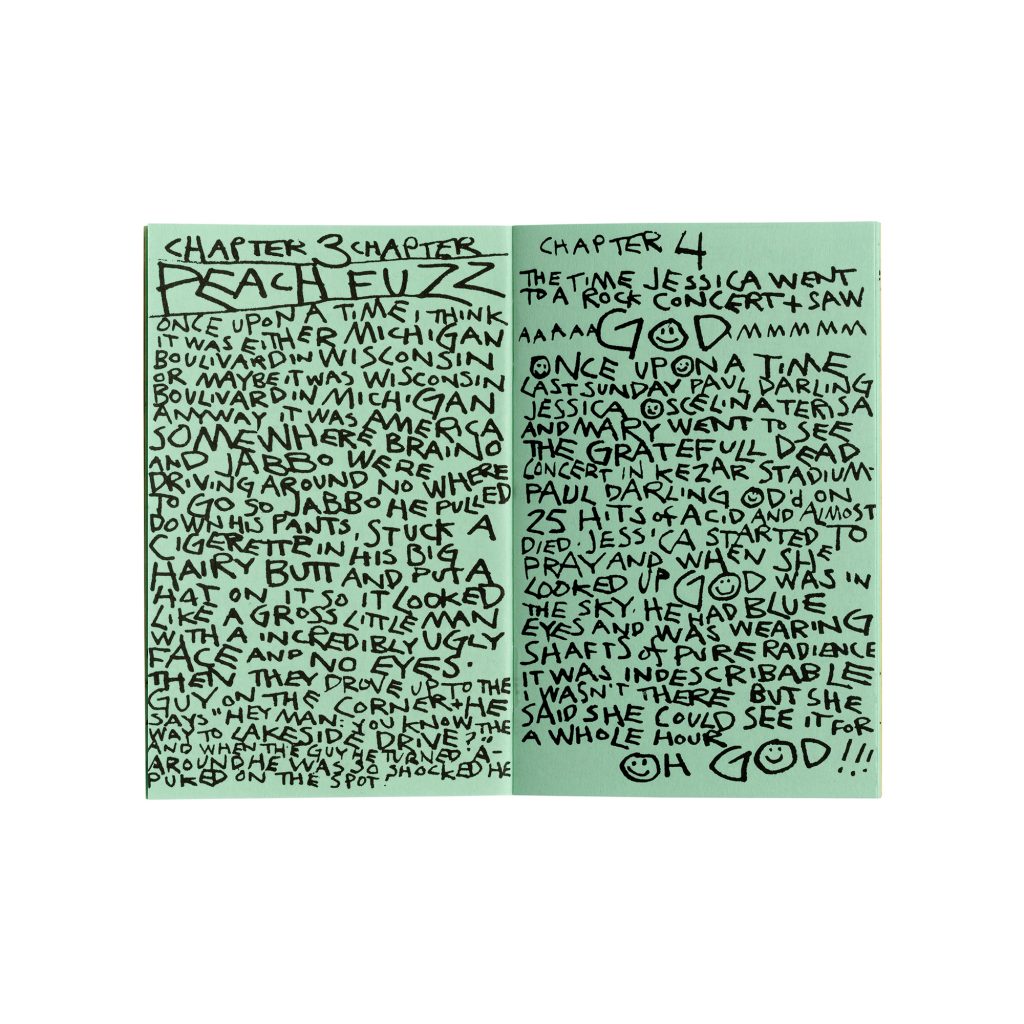 CHAPTER 3 CHAPTER
PEACH FUZZ
ONCE UPON A TIME I THINK
IT WAS EITHER MICHIGAN
BOULIVARD IN WISCONSIN
OR MAYBE IT WAS WISCONSIN
BOULIVARD IN MICHIGAN
ANYWAY IT WAS AMERICA
SOMEWHERE BRAINO
AND JABBO WERE
DRIVING AROUND NO WHERE
TO GO SO JABBO HE PULLED
DOWN HIS PANTS, STUCK A
CIGERETTE IN HIS BIG
HAIRY BUTT AND PUT A
HAT ON IT SO IT LOOKED
LIKE A GROSS LITTLE MAN
WITH A INCREDIBLY UGLY
FACE AND NO EYES.
THEN THEY DROVE UP TO THE
GUY ON THE CORNER + HE
SAYS "HEY MAN: YOU KNOW THE
WAY TO LAKESIDE DRIVE?"
AND WHEN THE GUY TURNED A-
AROUND HE WAS SO SHOCKED HE
PUKED ON THE SPOT.
CHAPTER 4
THE TIME JESSICA WENT
TO A ROCK CONCERT + SAW
AAAAA GOD MMMMM
ONCE UPON A TIME
LAST SUNDAY PAUL DARLING
JESSICA OSCELINA TERISA
AND MARY WENT TO SEE
THE GRATEFULL DEAD
CONCERT IN KEZAR STADIUM-
PAUL DARLING OD'd ON
25 HITS of ACID AND AlMOST
DIED. JESSICA STARTED TO
PRAY AND WHEN SHE
LOOKED UP GOD WAS IN
THE SKY. HE HAD BLUE
EYES AND WAS WEARING
SHAFTS of PURE RADIENCE
IT WAS INDESCRIBABLE
I WASN'T THERE BUT SHE
SAID SHE COULD SEE IT FOR
A WHOLE HOUR
OH GOD!!!